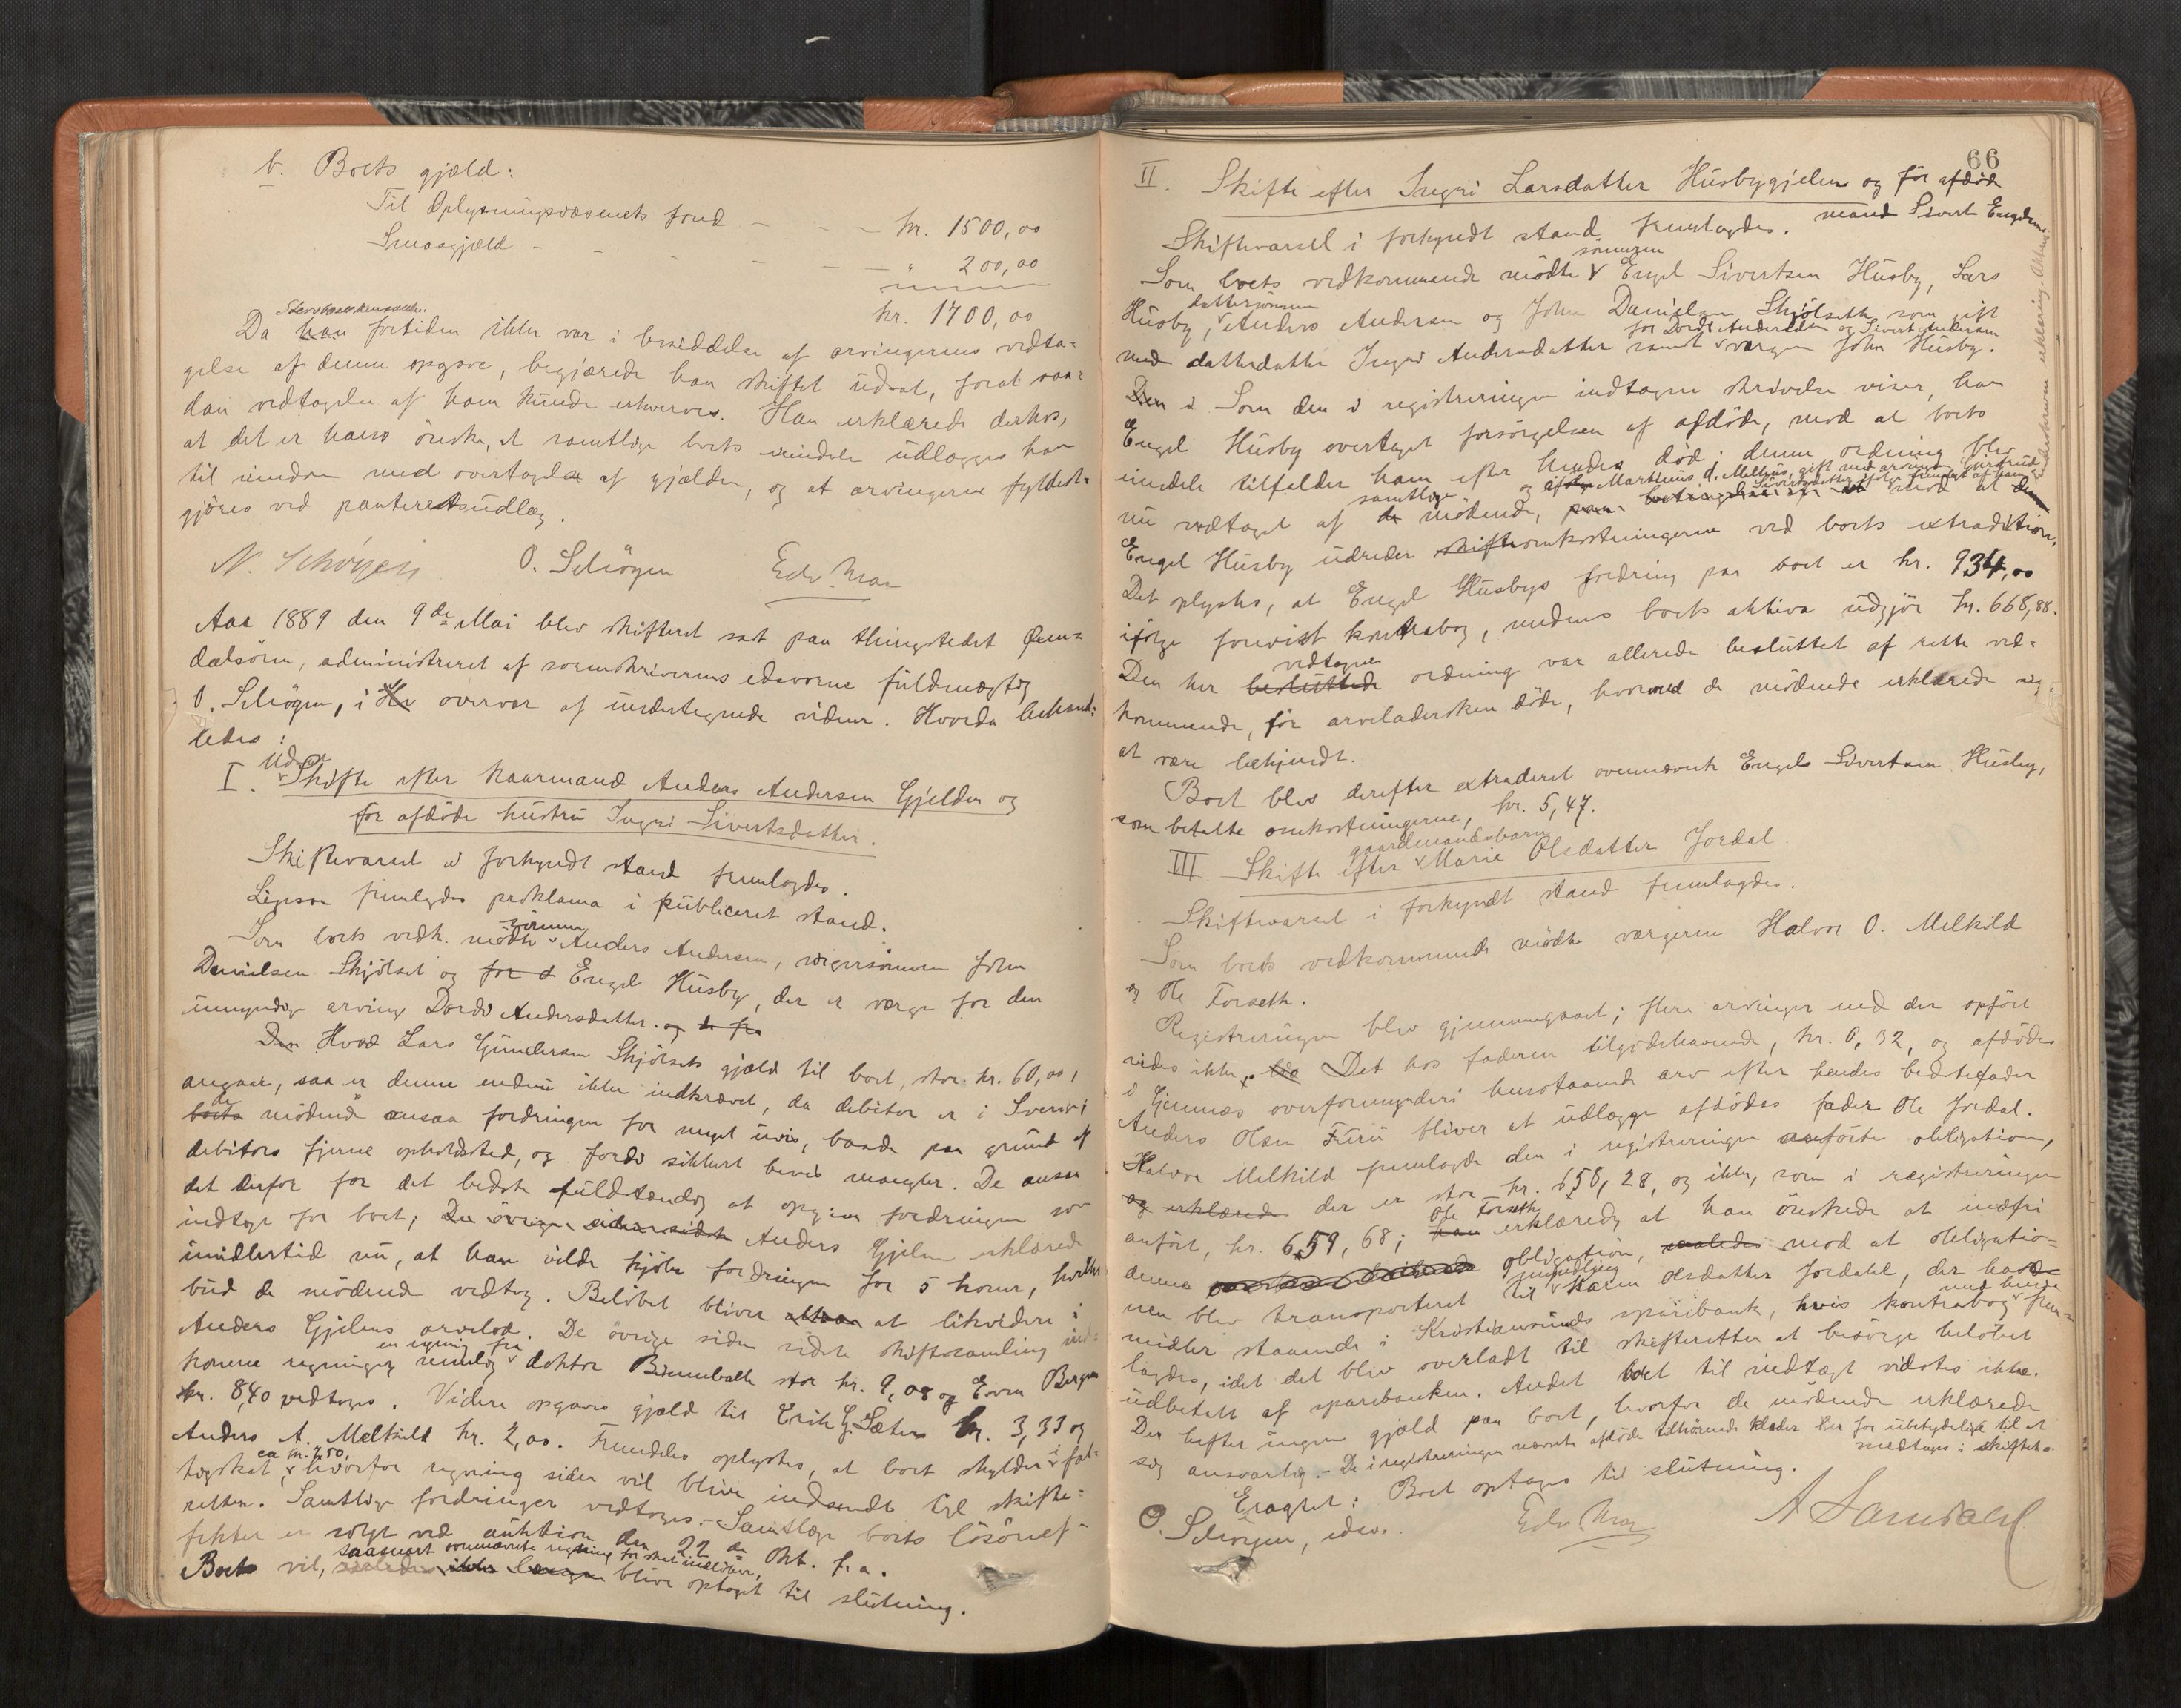 b. Boets gjæld:
Til Oplysningsvæsenets fond - - - kr. 1500,00
Smaagjæld - - - - - " 200,00
kr. 1700,00
Da han fortiden ikke var i besiddelse af arvingernes vedta=
gelse af denne opgave, begjærede han skiftet udsat, forat saa=
dan vedtagelse af ham kunde erhverves. Han erklærede derhos,
at det er hans ønske, at samtlige boets eiendele udlægges ham
til eiendom med overtagelse af gjælden, og at arvingerne fyldest=
gjøres ved panteretsudlæg.
N. Schøyen O. Schögen Edv. Moe
Aar 1889 den 9de Mai blev skifteret sat paa thingstedet Qven=
dalsören, administreret af sorenskriverens edsvorne fuldmægtig
O. Schögen, i overvær af undertegnede vidner. Hvorda behand=
ledes:
Uds.
I. Skifte efter kaarmand Anders Andersen Gjelden og
før afdöde hustru Ingri Sivertsdatter.
Skiftevarsel i forkyndt stand fremlagdes.
Ligesaa fremlagdes proklama i publiceret stand.
sönnen
Som boets vedk. mödte Anders Andersen, svigersönnen John
Danielsen Skjölset og for d Engel Husby, der er værge for den
umyndige arving Dordi Andersdatter. og de fra
Den Hvad Lars Gundersen Skjölsets gjæld til boet, stor kr. 60,00,
angaar, saa er denne endnu ikke indkrævet, da debitor er i Sverige;
de
boets mödende ansaa fordringen for meget uvis, baade paa grund af
debitors fjerne opholdssted, og fordi sikkert bevis mangler. De ansaa
det derfor for det bedste fuldstændig at opgive fordringen som
indtægt for boet; De övrige siden sidste Anders Gjelen erklærede
imidlertid nu, at han vilde kjöbe fordringen for 5 kroner, hvilket
bud de mödende vedtog. Belöbet bliver altsaa at likvidere i
Anders Gjelens arvelod. De övrige siden sidste skiftesamling ind=
en regning fra
komne regninger nemlig doktor Bonnevalle stor kr. 9,08 og Even Bergem
kr. 8,40 vedtoges. Videre opgaves gjæld til Erik G. Sæter kr. 3,33 og
Anders A. Melkild kr. 2,00. Fremdeles oplystes, at boet skylder i fat=
ca kr. 2,50,
tigskat, hvorfor regning siden vil blive indsendt til skifte=
retten. Samtlige fordringer vedtoges. - Samtlige boets lösöreef=
fekter er solgt ved auktion den 22de Okt. f. a.
saasnart ovennævnte regning for skat indlöber,
Boet vil, saaledes ikke længere blive optaget til slutning.
66
II. Skifte efter Ingri Larsdatter Husbygjelen og för afdöde
mand Sivert Engelsen
Skiftevarsel i forkyndt stand fremlagdes.
sönnen
Som boets vedkommende mödte Engel Sivertsen Husby, Lars
dattersönnen
Husby, Anders Andersen og John Danielsen Skjölseth, som gift
for Dordi Andersdtr og Sivert Andersen
med datterdatter Ingri Andersdatter samt værgen John Husby.
Den i Som den i registreringen indtagne skrivelse viser, har
Engel Husby overtaget forsörgelsen af afdöde, mod at boets
eiendele tilfalder ham efter hendes död; denne ordning blev
og Martinus J. Melhus, gift med arving Gjertrud
samtlige Sivertsdatter
nu vedtaget af de mödende, mod at
Engel Husby udreder skifteomkostningerne ved boets extradition,
Det oplystes, at Engel Husbys fordring paa boet er kr. 934,00
ifölge forevist kontrabog, medens boets aktiva udgjör kr. 668,88.
vedtagne
Den her besluttede ordning var allerede besluttet af rette ved=
kommende, för arveladersken döde, hvormed de mödende erklærede sig
at være bekjendt.
Boet blev derefter extraderet ovennævnte Engel Sivertsen Husby,
som betalte omkostningerne, kr. 5,47.
gaardmandsbarn
III Skifte efter Marie Olsdatter Jordal.
Skiftevarsel i forkyndt stand fremlagdes.
Som boets vedkommende mödte værgerne Halvor O. Melkild
og Ole Forseth.
Registreringen blev gjennemgaaet; flere arvinger end der opfört
vides ikke. Det hos faderen tilgodehavende, kr. 0,32, og afdödes
i Gjemnæs overformynderi henstaaende arv efter hendes bedstefader
Anders Olsen Furu bliver at udlægge afdödes fader Ole Jordal.
Halvor Melkild fremlagde den i registreringen anförte obligation,
og erklærede der er stor kr. 656,28, og ikke, som i registreringen
Ole Forseth
anfört, kr. 659,68; han erklærede, at han önskede at indfri
denne obligation, saaledes mod at obligatio=
myndling
nen blev transporteret til Karen Olsdatter Jordahl, der havde
midler staaende i Kristiansunds sparebank, hvis kontrabog frem=
lagdes, idet det blev overladt til skifteretten at besörge belöbet
udbetalt af sparebanken. Andet boet til indtægt vidstes ikke.
Der hefter ingen gjæld paa boet, hvorfor de mödende erklærede
sig ansvarlig. - De i registreringen nævnte afdöde tilhörende klæder er for ubetydelige til at
medtages i skiftet.
Eragtet: Boet optages til slutning.
O. Schögen, edsv. Edv. Moe A Sandahl